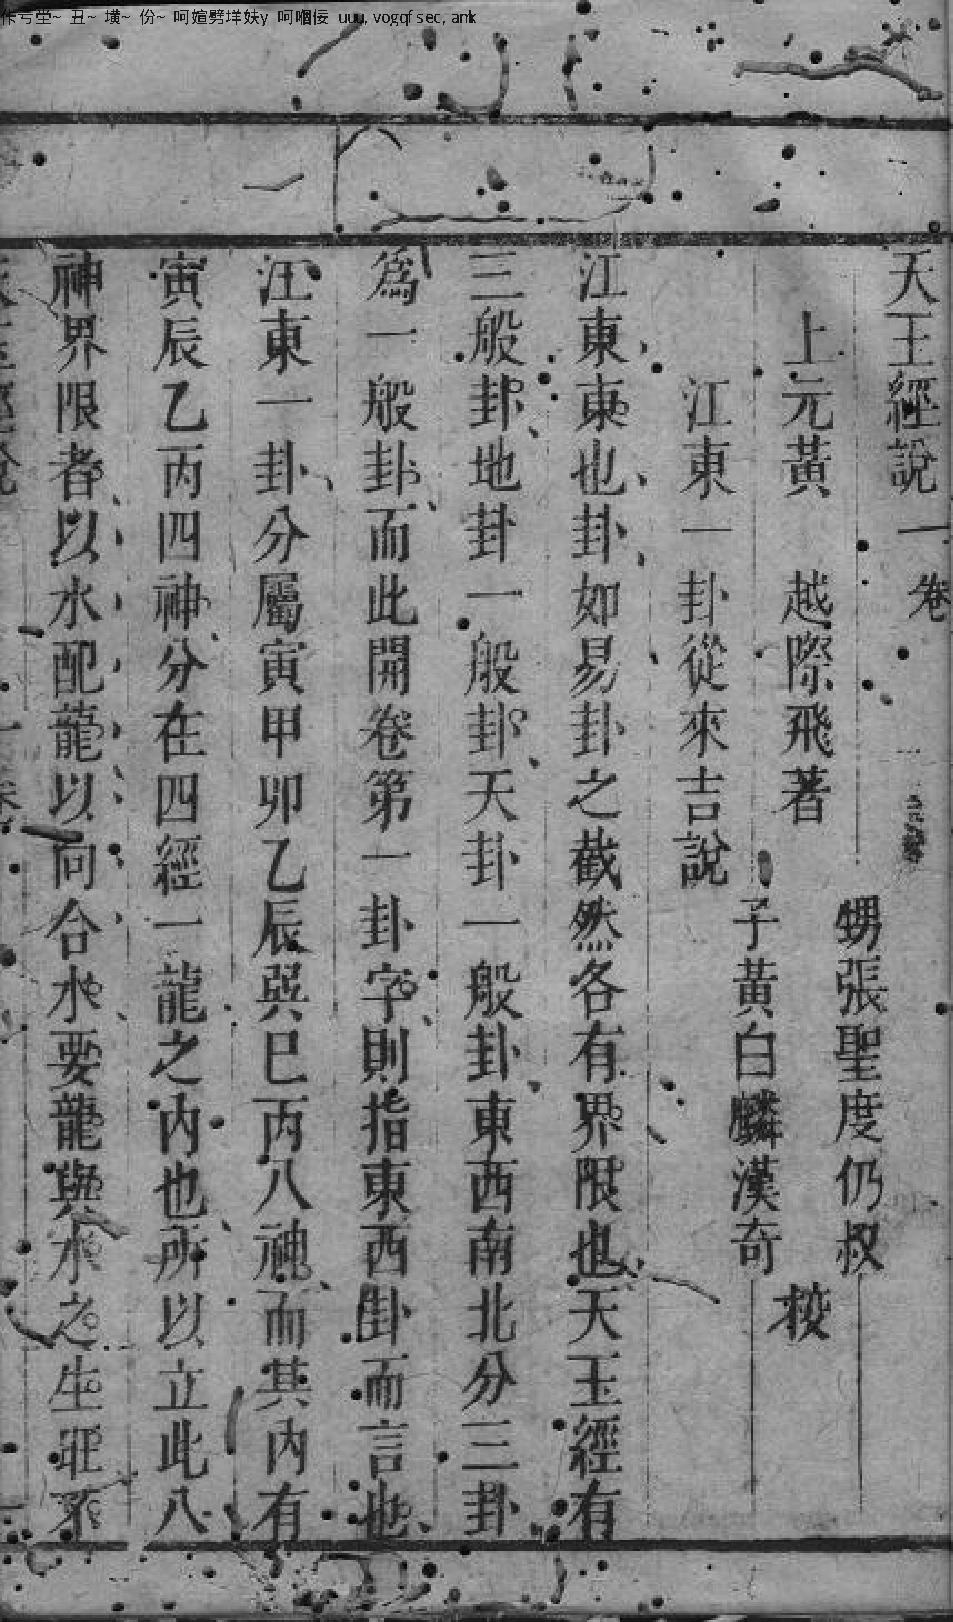 天玉經說一卷
上元黃 越際飛著
甥張聖度仍叔
子黃白麟漢奇
校
江東一卦從來吉說
江東東也卦如易卦之截然各有界限也天玉經有
三般卦地卦一般卦天卦一般卦東西南北分三卦
為一般卦而此開卷第一卦字則指東西卦而言也
江東一卦分屬寅甲卯乙辰巽巳丙八神而其內有
寅辰乙丙四神分在四經一龍之內也所以立此八
神界限者以水配龍以向合水要龍與水之生旺不